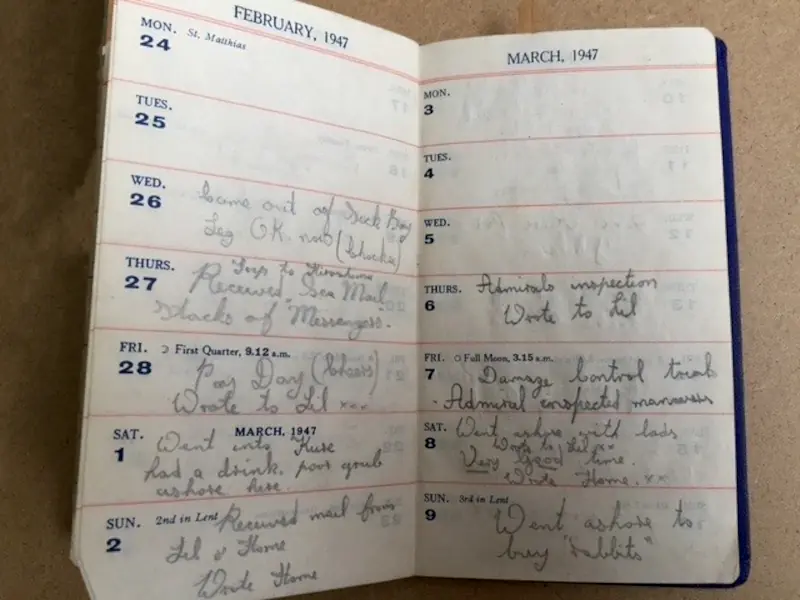 FEBRUARY, 1947
MON. St. Matthias
24
TUES.
25
WED.
26
Came out of Sick Bay
Leg OK now (Chocka)
THURS.
27
Trip to Hiroshima
Received Sea Mail
Stacks of "Messengers".
FRI. First Quarter, 9.12 a.m.
28
Pay Day (Cheers)
Wrote to Lil xxx
MARCH, 1947
SAT.
1
Went into Kure
had a drink. poor grub
ashore here.
SUN. 2nd in Lent
2
Received mail from
Lil & Home
Wrote Home
MARCH, 1947
MON.
3
TUES.
4
WED.
5
THURS.
6
Admirals inspection
Wrote to Lil
FRI. Full Moon, 3.15 a.m.
7
Damage Control trials
Admiral inspected
SAT.
8
Went ashore with lads
Wrote to Lil xx
Very Good time.
Wrote Home. xx
SUN. 3rd in Lent
9
Went ashore to
buy "rabbits"